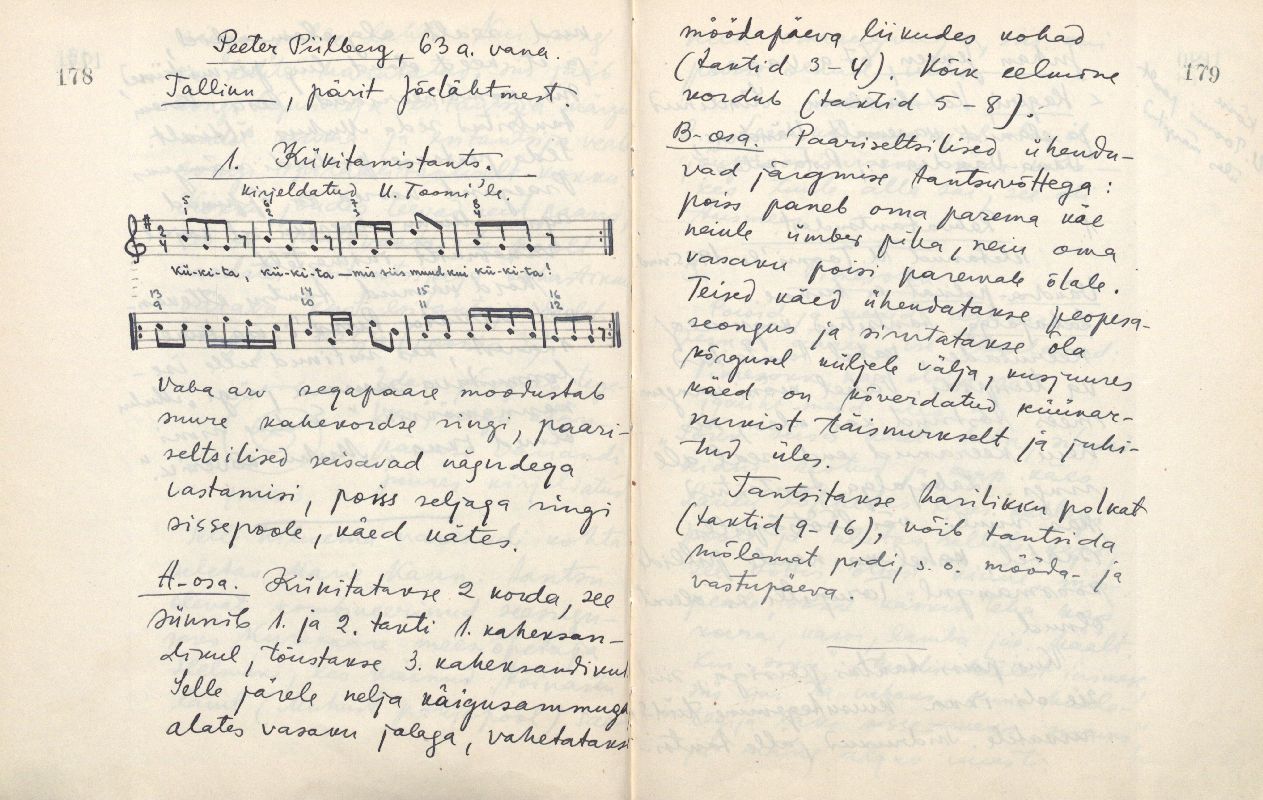 178
Peeter Piilberg, 63 a. vana.
Tallinn, pärit Jõelähtmest.
1. Kükitamistants.
kirjeldatud U. Toomi'le.
5 6 7 8
1 2 3 4
2
4
Kü-ki-ta, kü-ki-ta — mis siis muud kui kü-ki-ta!
13 14 15 16
9 10 11 12
Vaba arv segapaare moodustab
suure kahekordse ringi, paari-
seltsilised seisavad nägudega
vastamisi, poiss seljaga ringi
sissepoole, käed kätes.
A-osa. Kükitatakse 2 korda, see
sünnib 1. ja 2. takti 1. kaheksan-
dikul, tõustakse 3. kaheksandikul
Selle järele nelja käigusammuga
alates vasaku jalaga, vahetatakse
179
möödapäeva liikudes kohad
(taktid 3-4). Kõik eelmine
kordub (taktid 5-8).
B-osa. Paariseltsilised ühendu-
vad järgmise tantsuvõttega:
poiss paneb oma parema käe
neiule ümber piha, neiu oma
vasaku poisi paremale õlale.
Teised käed ühendatakse peopesa-
seongus ja sirutatakse õla
kõrgusel küljele välja, kusjuures
käed on kõverdatud küünar-
nukist täisnurkselt ja juhi-
tud üles.
Tantsitakse harilikku polkat
(taktid 9-16), võib tantsida
mõlemat pidi, s.o. mööda- ja
vastupäeva.